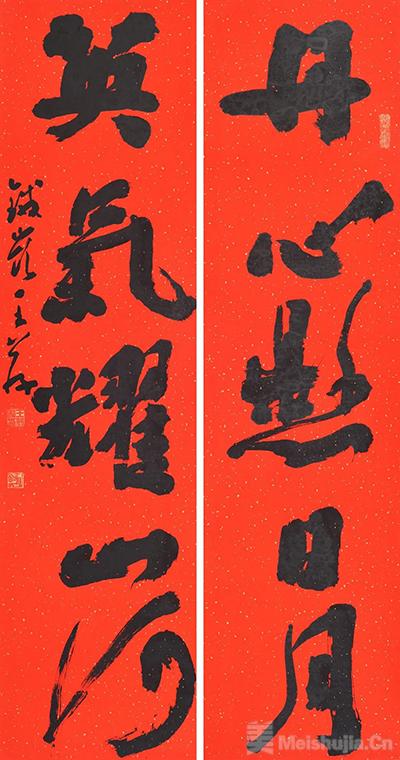 丹心照日月
英氣耀山河
Meishujia.Cn